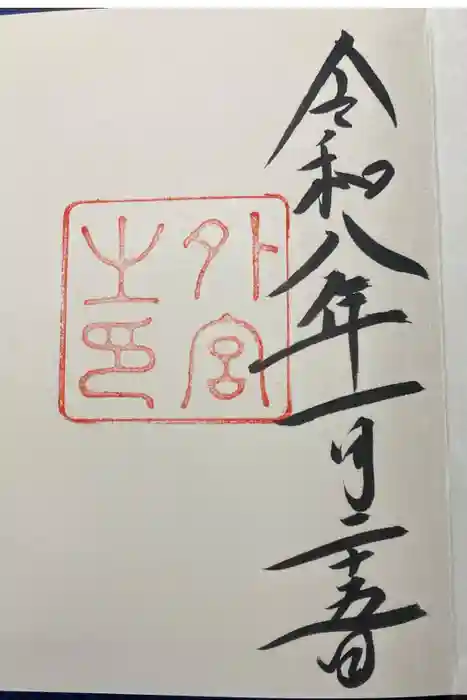 令和八年一月二十五日
外宮
之印